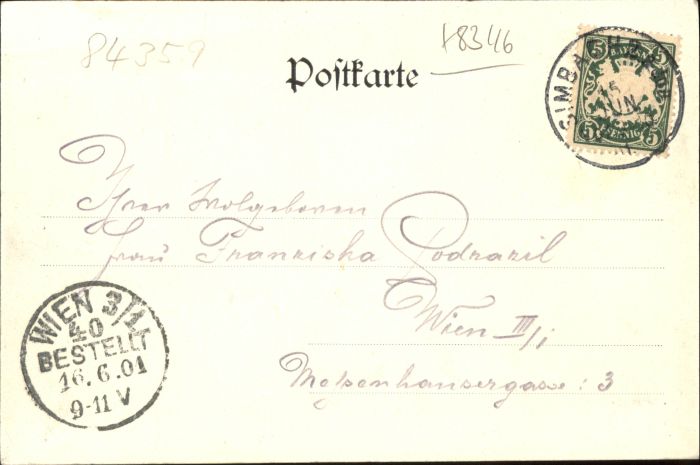 84359
18346
Postkarte
5 BAYERN 5
5 PFENNIG 5
SIMBACH
15 JUN
Ihrer Wolgeboren
Frau Franziska Podrazil
Wien III/1
Metzenhausergasse: 3
WIEN 3/1
40
BESTELLT
16.6.01
9-11 V